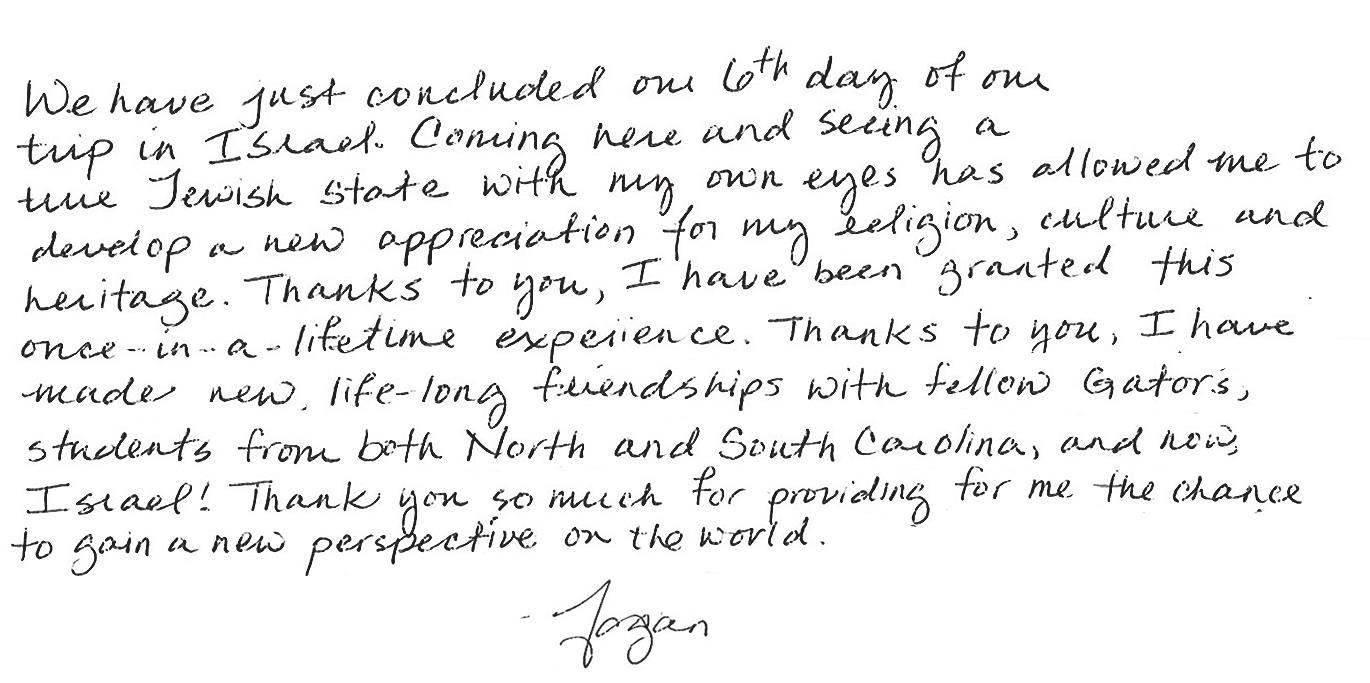 We have just concluded our 6th day of our
trip in Israel. Coming here and seeing a
true Jewish state with my own eyes has allowed me to
develop a new appreciation for my religion, culture and
heritage. Thanks to you, I have been granted this
once-in-a-lifetime experience. Thanks to you, I have
made new, life-long friendships with fellow Gators,
students from both North and South Carolina, and now,
Israel! Thank you so much for providing for me the chance
to gain a new perspective on the world.
- Logan